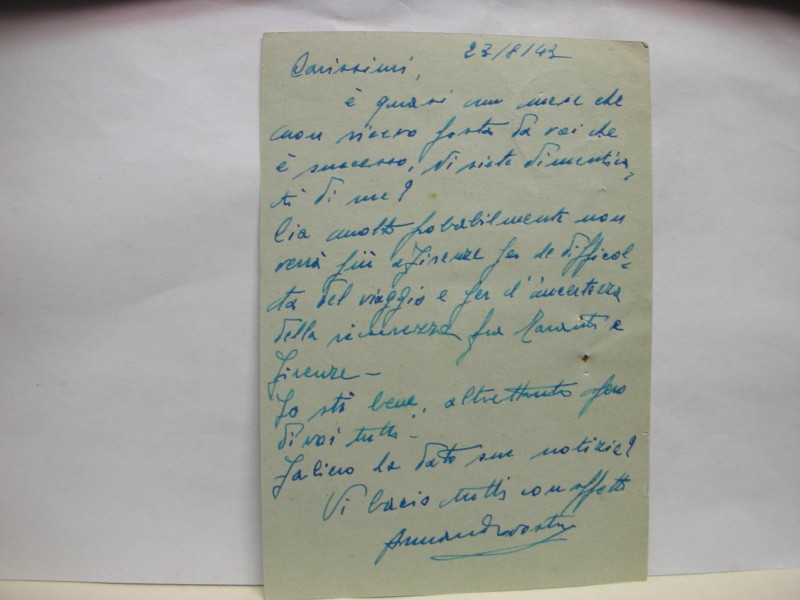 23/8/43
Carissimi,
è quasi un mese che
non ricevo posta da voi che
è successo, vi siete dimentica-
ti di me?
Lia molto probabilmente non
verrà più a Firenze per le difficol-
tà del viaggio e per l'incertezza
della sicurezza fra e
Firenze -
Io stò bene, altrettanto spero
di voi tutti -
ha dato sue notizie?
Vi bacio tutti con affetto
Armando vostro